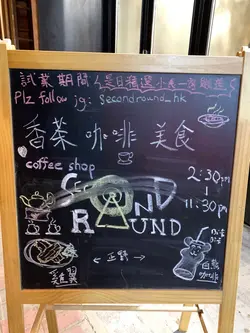 試業期間 是日精選小食一客
Plz follow ig: secondround_hk
香茶 咖啡 美食
coffee shop
SECOND
ROUND
2:30pm
11:30pm
正野
雞翼
咖啡